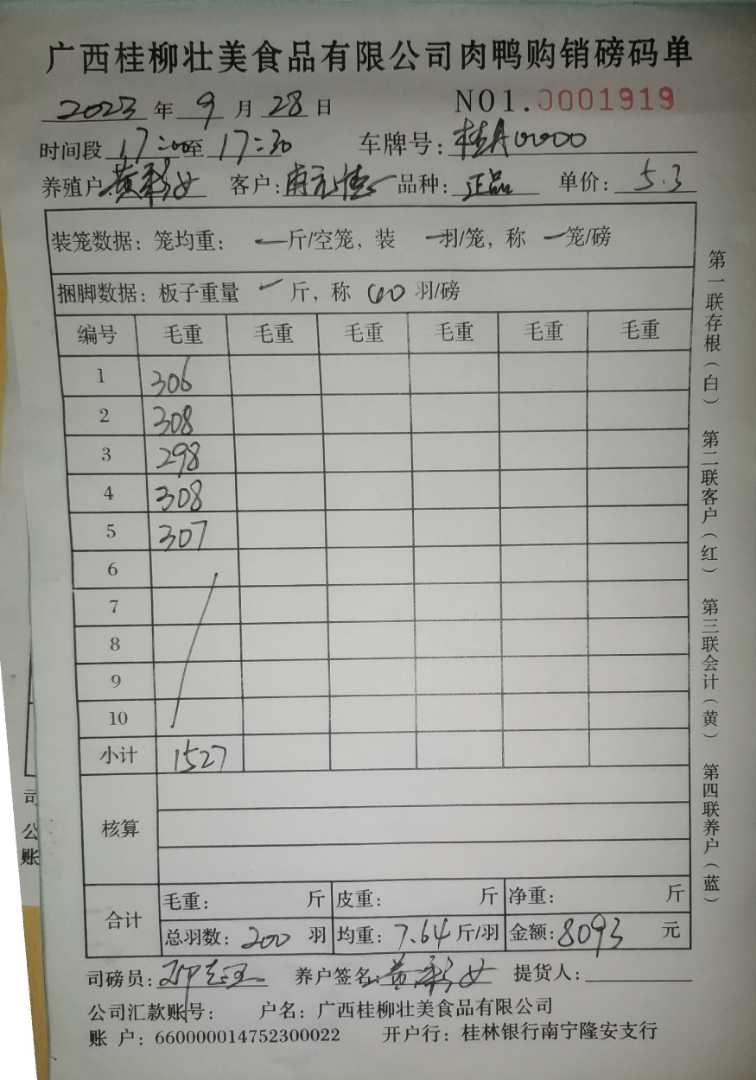 广西桂柳壮美食品有限公司肉鸭购销磅码单
2023年9月28日 NO1.0001919
时间段 17:00至17:30 车牌号:桂A00000
养殖户: 客户: 品种:正品 单价:5.3
装笼数据:笼均重:一斤/空笼,装一羽/笼,称一笼/磅
捆脚数据:板子重量 一 斤,称 40 羽/磅
编号 毛重 毛重 毛重 毛重 毛重 毛重
1 306
2 308
3 298
4 308
5 307
6
7
8
9
10
小计 1527
核算
合计 毛重: 斤 皮重: 斤 净重: 斤
总羽数:200 羽 均重:7.64 斤/羽 金额:8093 元
司磅员: 养户签名: 提货人:
公司汇款账号: 户名:广西桂柳壮美食品有限公司
账 户:660000014752300022 开户行:桂林银行南宁隆安支行
第一联存根(白) 第二联客户(红) 第三联会计(黄) 第四联养户(蓝)
司
公
账